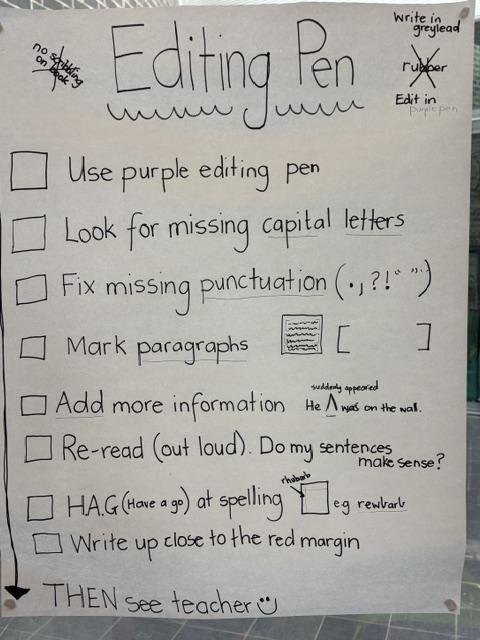 no scribbling
on book
Editing Pen
Write in
greylead
rubber
Edit in
purple pen
Use purple editing pen
Look for missing capital letters
Fix missing punctuation (. , ? ! " " ...)
Mark paragraphs [ ]
suddenly appeared
Add more information He ∧ was on the wall.
Re-read (out loud). Do my sentences
make sense?
rhubarb
H.A.G (Have a go) at spelling eg rewbarb
Write up close to the red margin
THEN see teacher